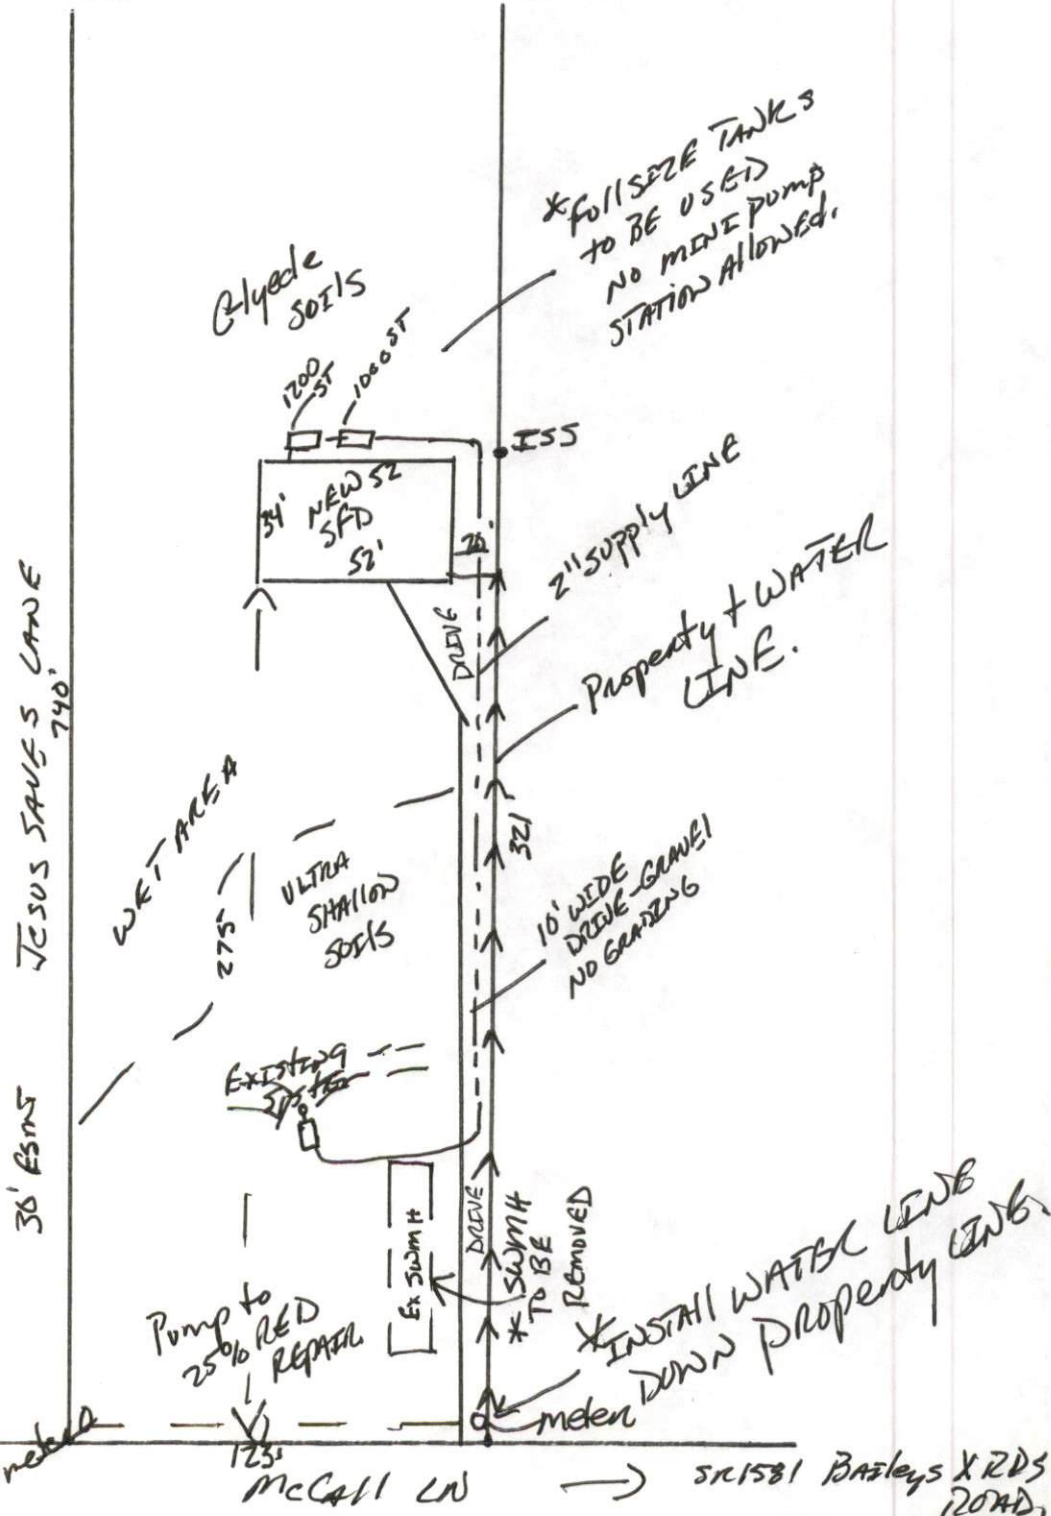 *Full SIZE TANKS
TO BE USED
NO MINI PUMP
STATION AllOWED.
Glyede
SOILS
1200
ST
1000 ST
ISS
NEW 52
SFD
34'
52'
2" SUPPLY LINE
Property + WATER
LINE.
DRIVE
JESUS SAVES LANE
740'
WET AREA
275'
ULTRA
SHALLOW
SOILS
321
10' WIDE
DRIVE-GRAVEL
NO GRADING
EXISTING
System
30' ESMT
Ex SWMH
DRIVE
* SWMH
TO BE
REMOVED
Pump to
25% RED
REPAIR
*INSTALL WATER LINE
DOWN PROPERTY LINE.
meter
McCall LN → SR1581 BAIleys XRDS
ROAD.